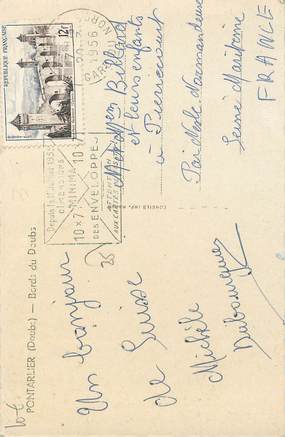 PONTARLIER (Doubs) — Bords du Doubs
Un bonjour
de Suisse
Michèle
Dubourgue
REPUBLIQUE FRANÇAISE
12F
1956
GARE DU NORD
Depuis le 1er Janvier 1955
DIMENSIONS
10 x 7 MINIMA 10
DES ENVELOPPES
ATTENTION
AUX CARTES
Mr et Mme Billard
et leurs enfants
à Pierrecourt
Par Nesle Normandeuse
Seine Maritime
FRANCE